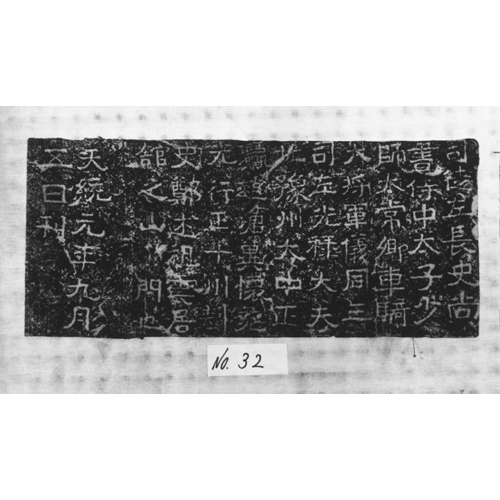 司徒左長史尚
書侍中太子少
師太常卿車騎
大將軍儀同三
司左光祿大夫
北豫州大中正
趙滄冀懷兗
光行正十州刺
史鄭述祖雲居
館之山門也
天統元年九月
五日刊
No. 32